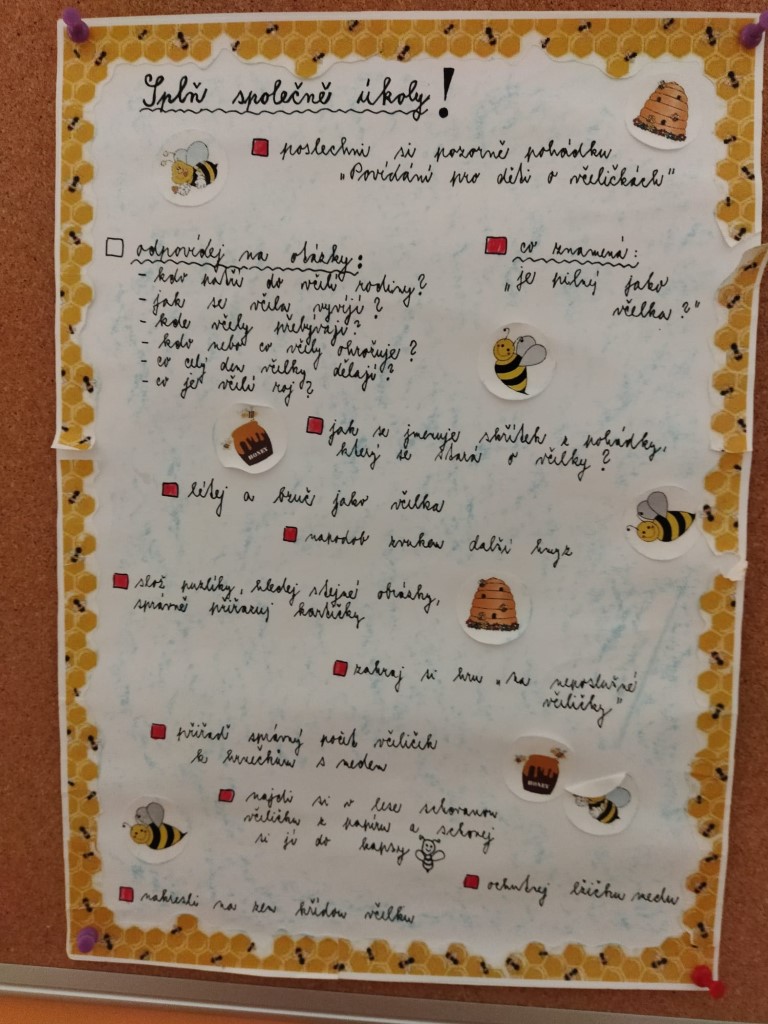 Splň společně úkoly!
poslechni si pozorně pohádku
„Povídání pro děti o včeličkách"
odpovídej na otázky:
- kdo patří do včelí rodiny?
- jak se včela vyvíjí?
- kde včely přebývají?
- kdo nebo co včely ohrožuje?
- co celý den včelky dělají?
- co je včelí roj?
co znamená:
„je pilný jako
včelka?"
HONEY
jak se jmenuje skřítek z pohádky,
který se stará o včelky?
létej a bzuč jako včelka
napodob zvukem další hmyz
slož puzlíky, hledej stejné obrázky,
správně přiřazuj kartičky
zahraj si hru „na neposlušné
včeličky"
přiřaď správný počet včeliček
k hrnečkům s medem
HONEY
najdi si v lese schovanou
včeličku z papíru a schovej
si ji do kapsy
ochutnej lžičku medu
nakresli na zem křídou včelku